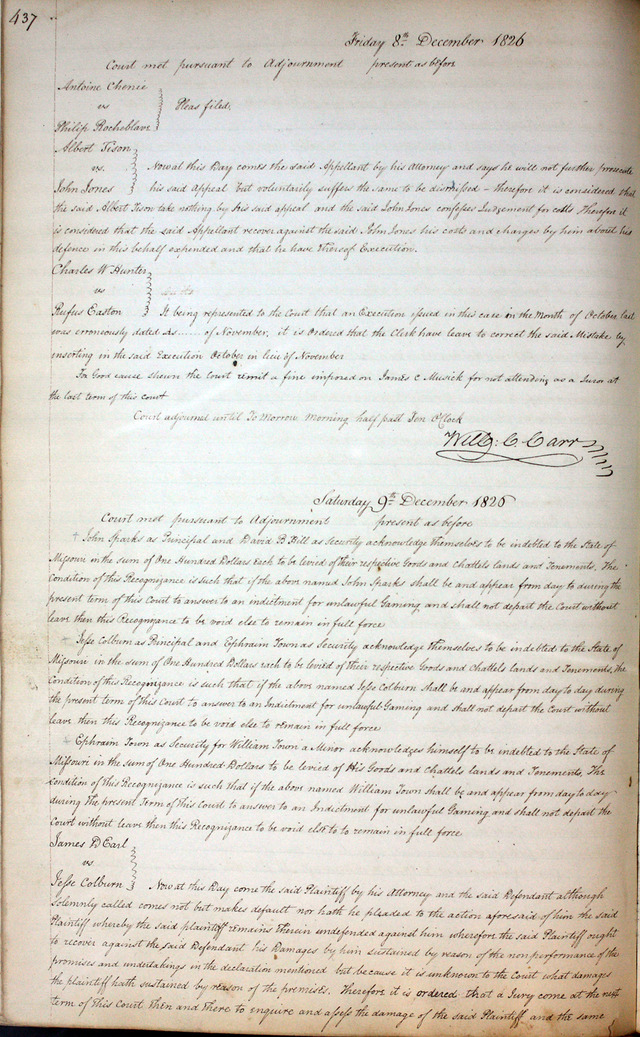 437
Friday 8th December 1826
Court met pursuant to Adjournment present as before
Antoine Chenie
vs
Pleas filed.
Philip Rocheblave
Albert Tison
vs.
Now at this Day comes the said Appellant by his Attorney and says he will not further prosecute
John Jones his said appeal but voluntarily suffers the same to be dismissed – therefore it is considered that
the said Albert Tison take nothing by his said appeal and the said John Jones confesses Judgement for costs Therefore it
is considered that the said Appellant recover against the said John Jones his costs and charges by him about his
defence in this behalf expended and that he have Thereof Execution.
Charles W Hunter
vs
Rufus Easton It being represented to the Court that an Execution issued in this case in the Month of October last
was erroneously dated As...... of November, it is Ordered that the Clerk have leave to correct the said Mistake by
inserting in the said Execution October in lieu of November
For Good cause shewn the court remit a fine imposed on James C Musick for not attending as a Juror at
the last term of this court
Court adjourned until To Morrow Morning half past Ten OClock
Will: C Carr
Saturday 9th December 1826
Court met pursuant to Adjournment present as before
+ John Sparks as Principal and David B Hill as Security acknowledge themselves to be indebted to the State of
Missouri in the sum of One Hundred Dollars each to be levied of their respective Goods and chattels lands and Tenements. The
Condition of this Recognizance is such that if the above named John Sparks shall be and appear from day to during the
present term of this Court to answer to an indictment for unlawful Gaming and shall not depart the Court without
leave then this Recognizance to be void else to remain in full force
+ Jesse Colburn as Principal and Ephraim Town as Security acknowledge themselves to be indebted to the State of
Missouri in the sum of One Hundred Dollars each to be levied of their respective Goods and Chattels lands and Tenements, The
Condition of this Recognizance is such that if the above named Jesse Colburn shall be and appear from day to day during
the present term of this Court to answer to an Indictment for unlawful Gaming and shall not depart the Court without
leave then this Recognizance to be void else to remain in full force
+ Ephraim Town as Security for William Town a Minor acknowledges himself to be indebted to the State of
Missouri in the sum of One Hundred Dollars to be levied of His Goods and Chattels lands and Tenements. The
condition of this Recognizance is such that if the above named William Town shall be and appear from day to day
during the present Term of this Court to answer to an Indictment for unlawful Gaming and shall not depart the
Court without leave then this Recognizance to be void else to to remain in full force
James D Earl
vs
Jesse Colburn Now at this Day come the said Plaintiff by his Attorney and the said Defendant although
solemnly called comes not but makes default nor hath he pleaded to the action aforesaid of him the said
Plaintiff whereby the said plaintiff remains therein undefended against him wherefore the said Plaintiff ought
to recover against the said Defendant his Damages by him sustained by reason of the nonperformance of the
promises and undertakings in the declaration mentioned but because it is unknown to the Court what damages
the plaintiff hath sustained by reason of the premises. Therefore it is ordered that a Jury come at the next
term of this Court then and there to enquire and assess the damage of the said Plaintiff and the same